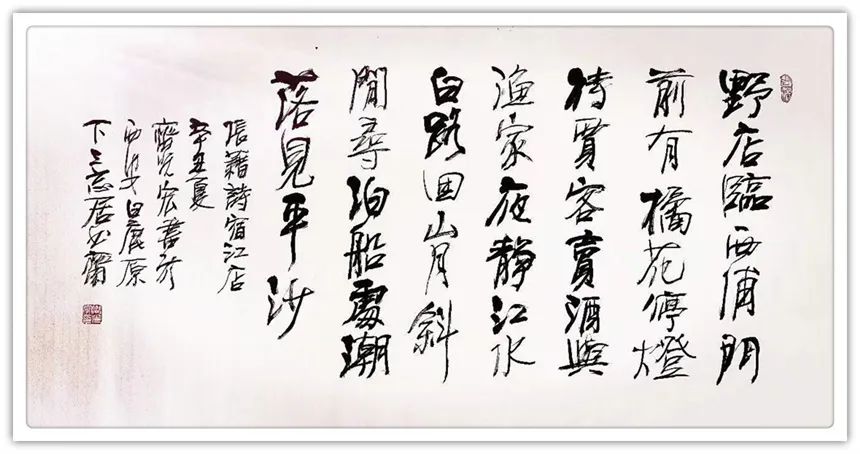 野店臨西浦門
前有橘花停燈
待賈客賣酒與
漁家夜靜江水
白路回山月斜
閒尋泊船處潮
落見平沙
張籍詩宿江店
辛丑夏
宏書於
西安白鹿原
下三志居